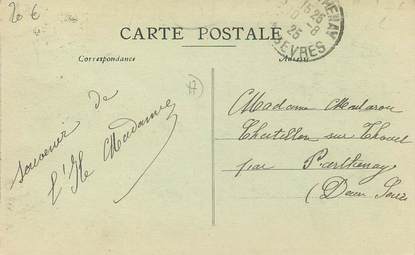 20 €
CARTE POSTALE
Correspondance
Adresse
15 25
8
25
SEVRES
Souvenir de
l'Ile Madame
Madame
Chatillon sur Thouet
par Parthenay
(Deux Sèvres